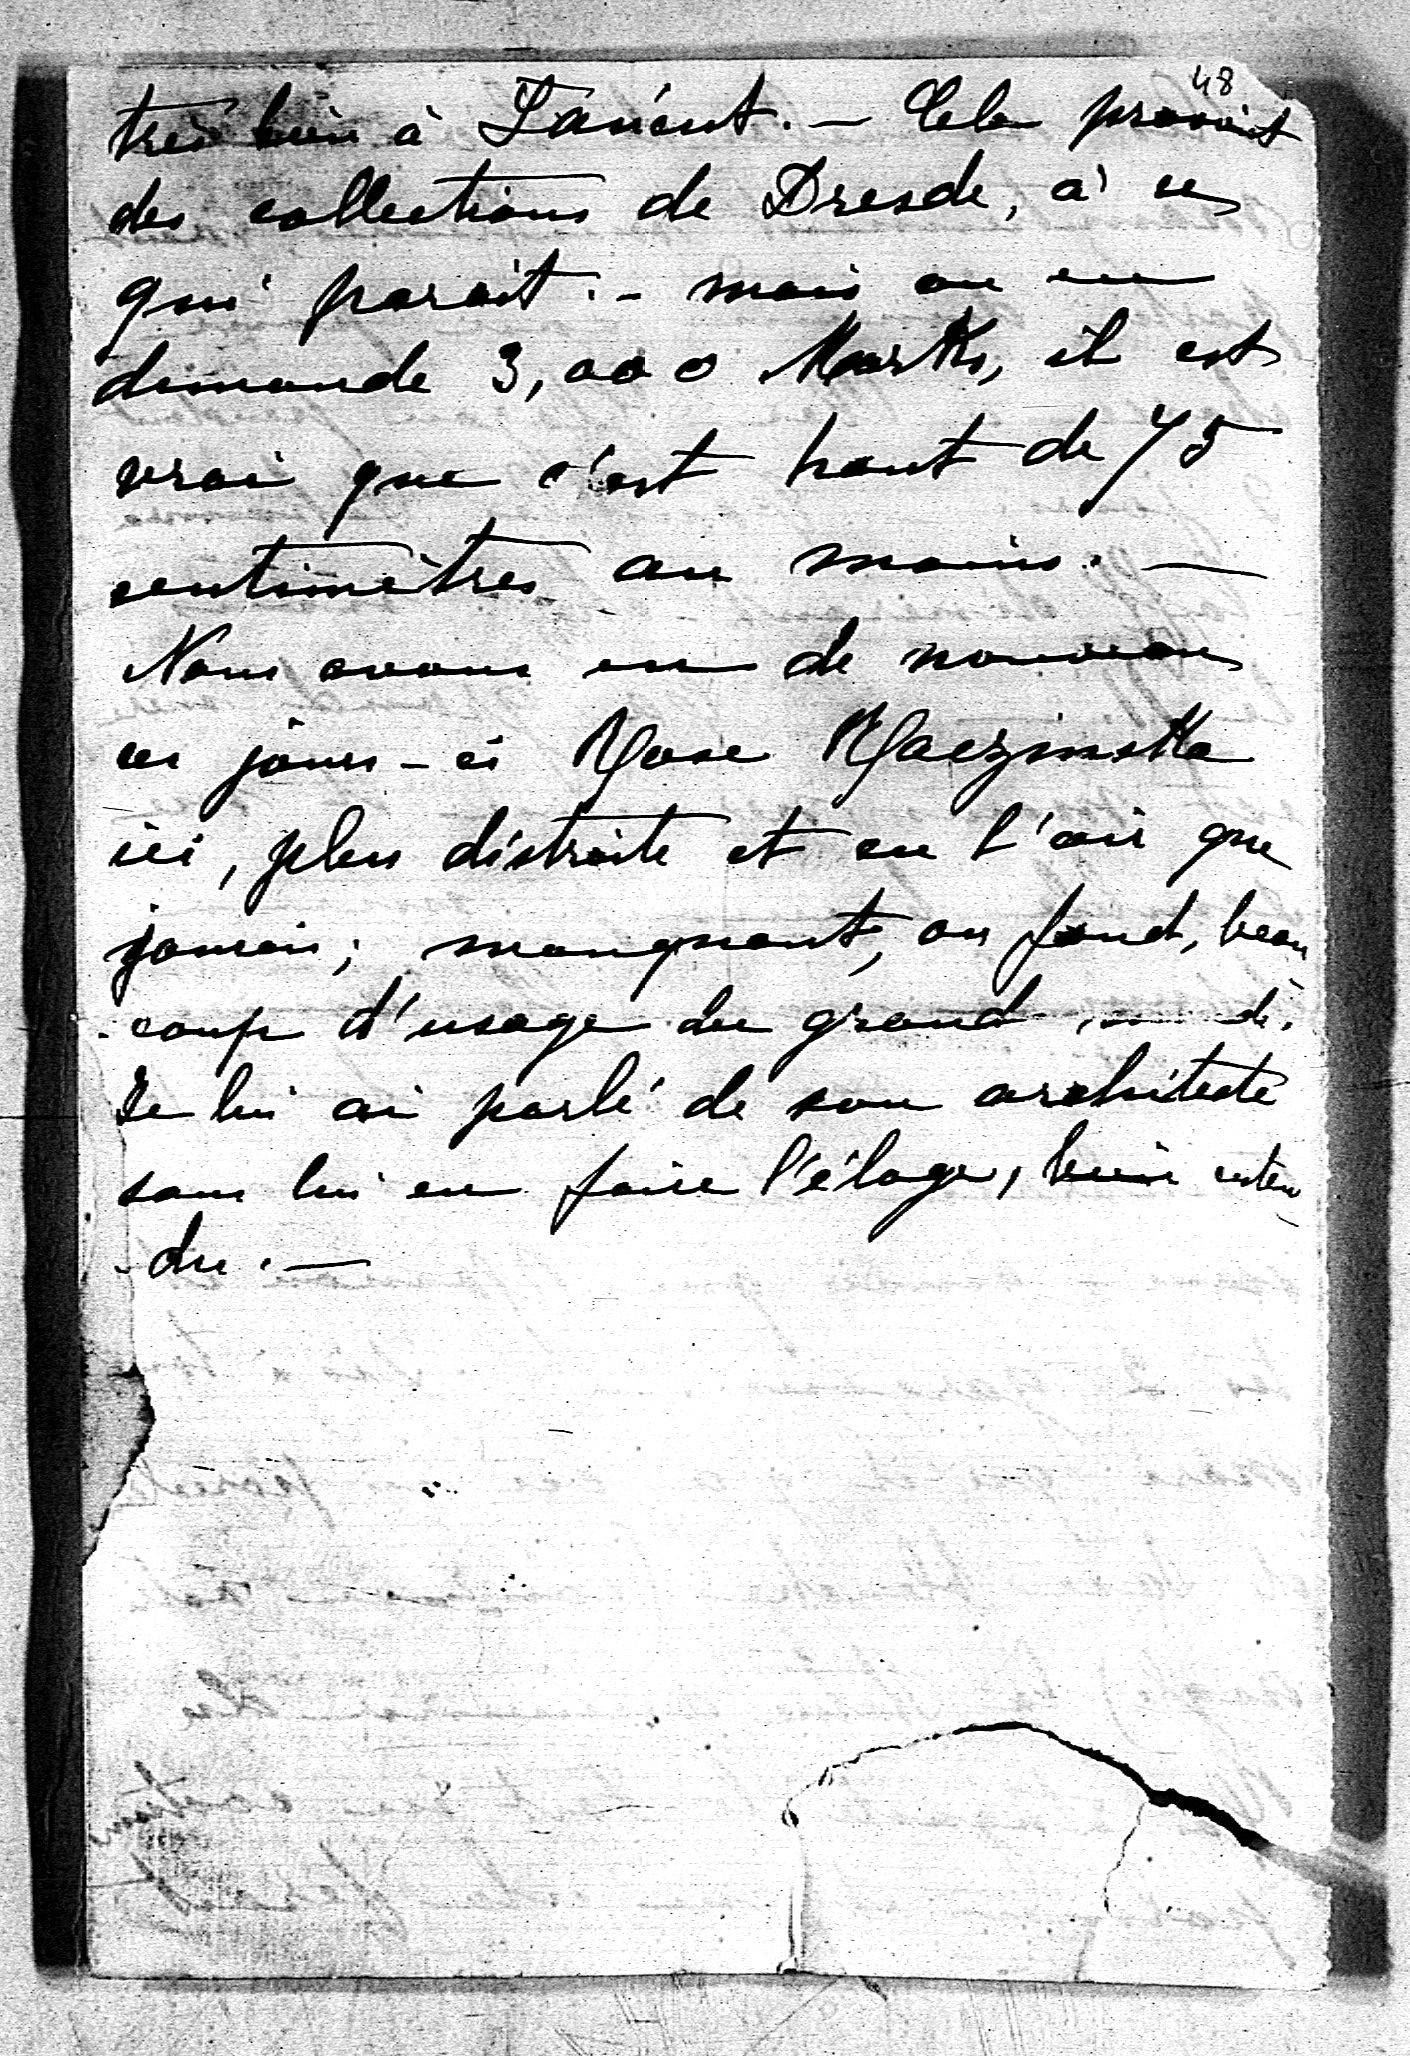 48
très bien à Łańcut. — Cela provient
des collections de Dresde, à ce
qui parait. - mais on en
demande 3,000 Marks, il est
vrai que c'est haut de 75
centimètres au moins. —
Nous avons eu de nouveau
ces jours-ci Rose Raczinska
ici, plus distraite et en l'air que
jamais; manquant, au fond, beau
-coup d'usage du grand monde.
Je lui ai parlé de son architecte
sans lui en faire l'éloge, bien enten
-du. —